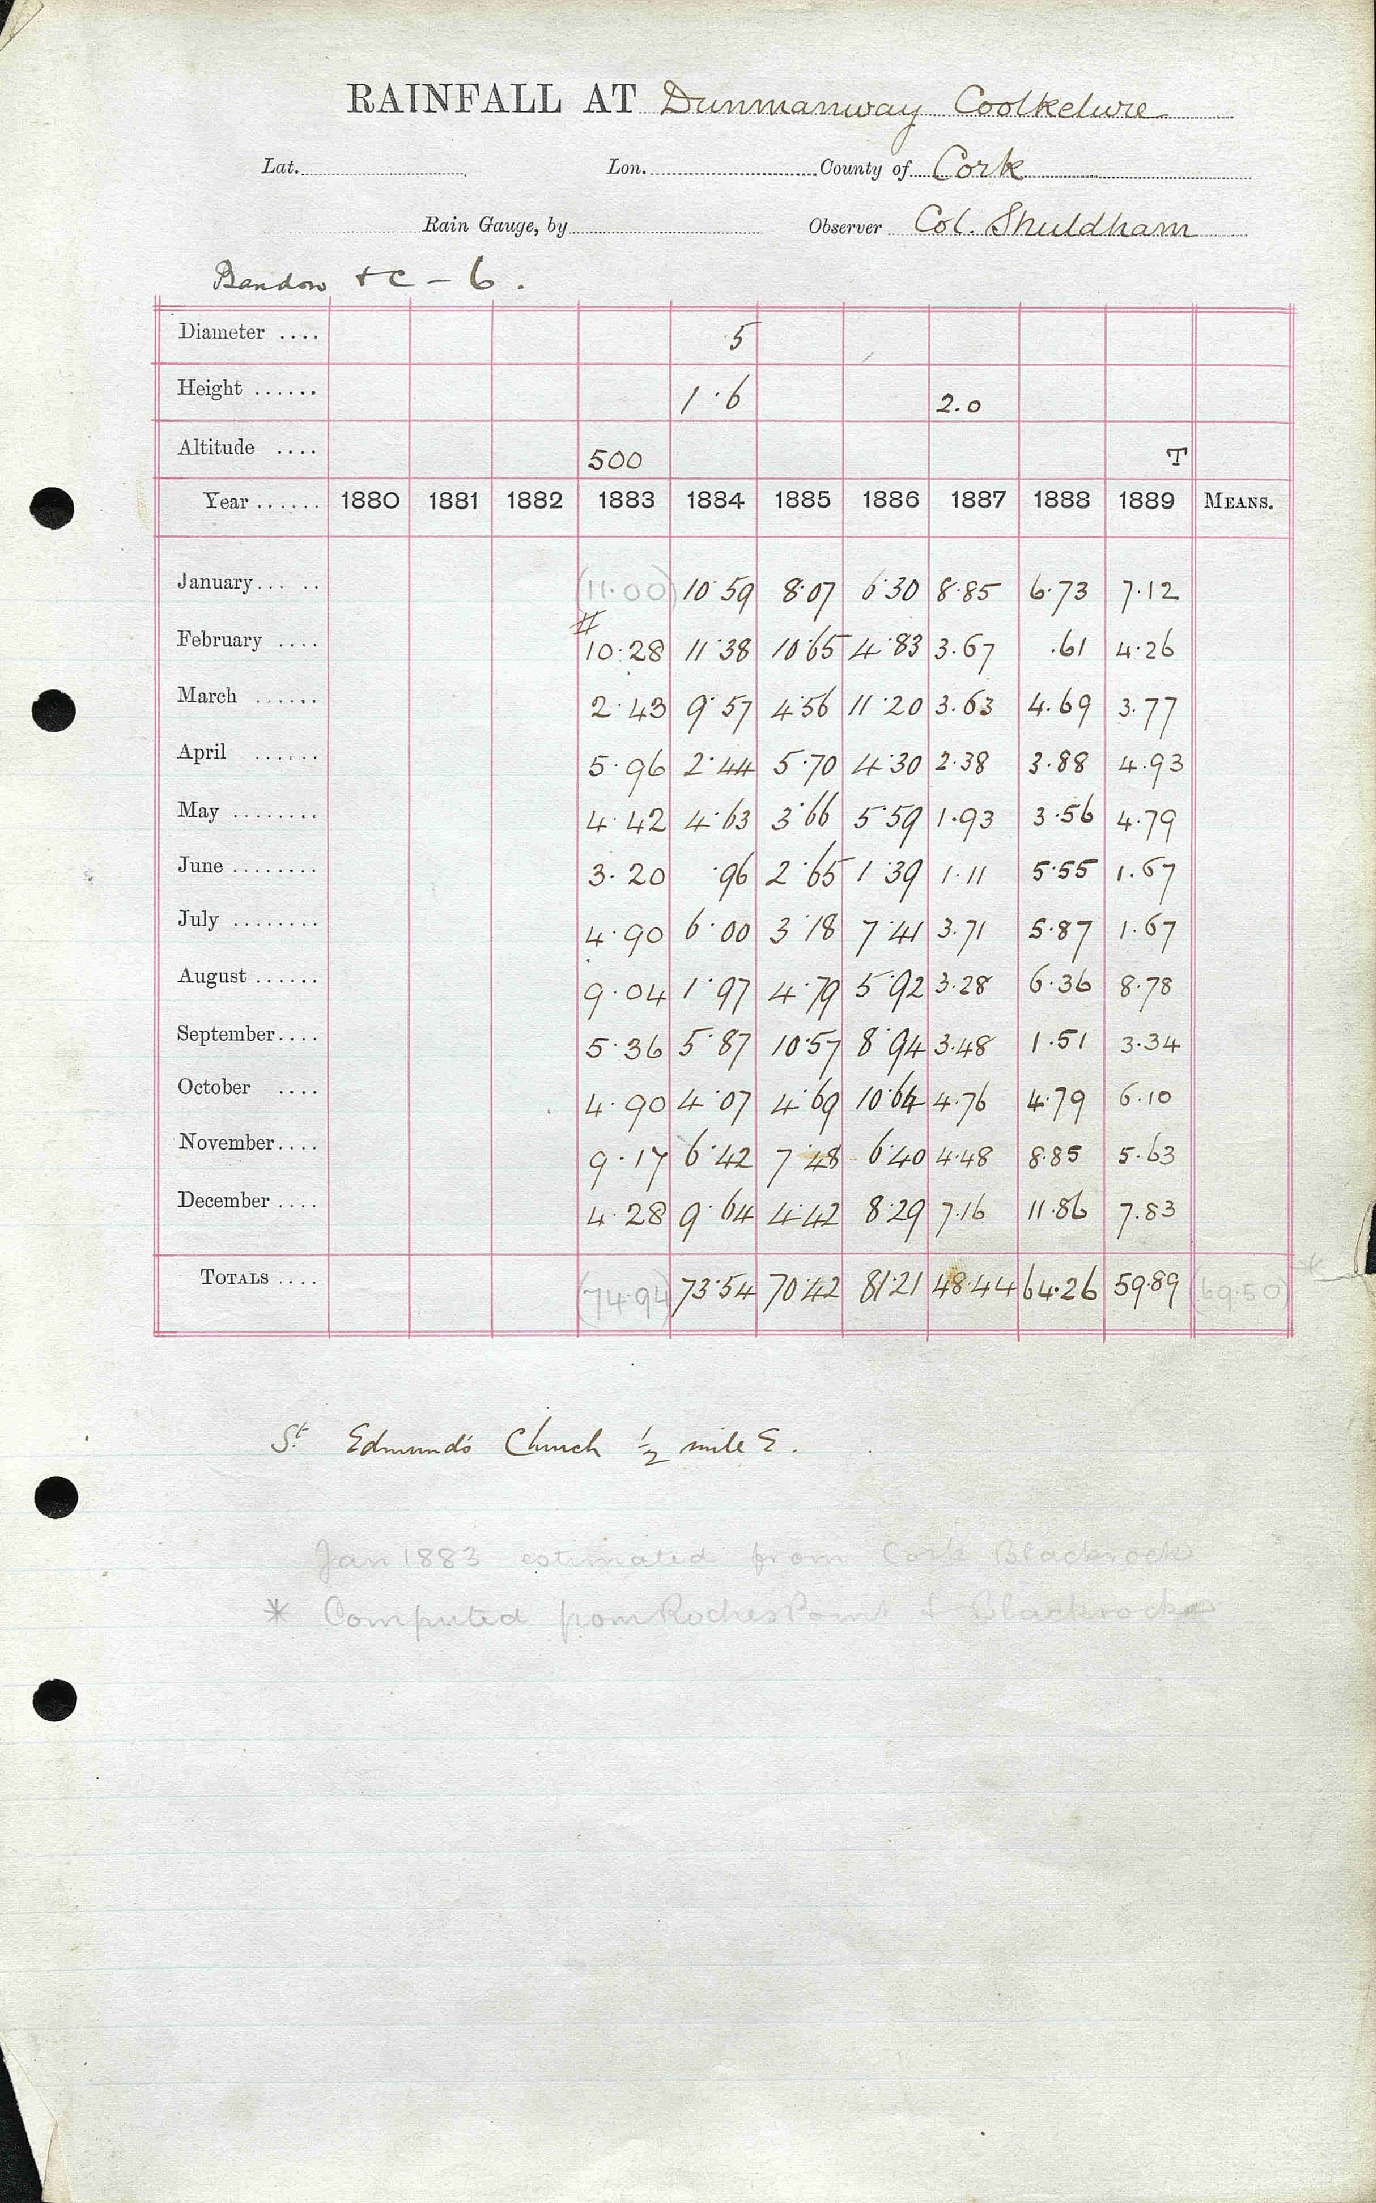 RAINFALL AT Dunmanway Coolkelure
Lat. Lon. County of Cork
Rain Gauge, by Observer Col. Shuldham
Bandon + C - 6.
Diameter .... 5
Height ...... 1.6 2.0
Altitude .... 500 T
Year ...... 1880 1881 1882 1883 1884 1885 1886 1887 1888 1889 MEANS.
January... .. (11.00) 10.59 8.07 6.30 8.85 6.73 7.12
#
February .... 10.28 11.38 10.65 4.83 3.67 .61 4.26
March ...... 2.43 9.57 4.56 11.20 3.63 4.69 3.77
April ...... 5.96 2.44 5.70 4.30 2.38 3.88 4.93
May ........ 4.42 4.63 3.66 5.59 1.93 3.56 4.79
June ........ 3.20 .96 2.65 1.39 1.11 5.55 1.67
July ........ 4.90 6.00 3.18 7.41 3.71 5.87 1.67
August ...... 9.04 1.97 4.79 5.92 3.28 6.36 8.78
September.... 5.36 5.87 10.57 8.94 3.48 1.51 3.34
October .... 4.90 4.07 4.69 10.64 4.76 4.79 6.10
November.... 9.17 6.42 7.48 6.40 4.48 8.85 5.63
December .... 4.28 9.64 4.42 8.29 7.16 11.86 7.83
TOTALS .... (74.94) 73.54 70.42 81.21 48.44 64.26 59.89 (69.50) *
St Edmund's Church ½ mile E.
Jan 1883 estimated from Cork Blackrock
* Computed from Roches Point & Blackrock